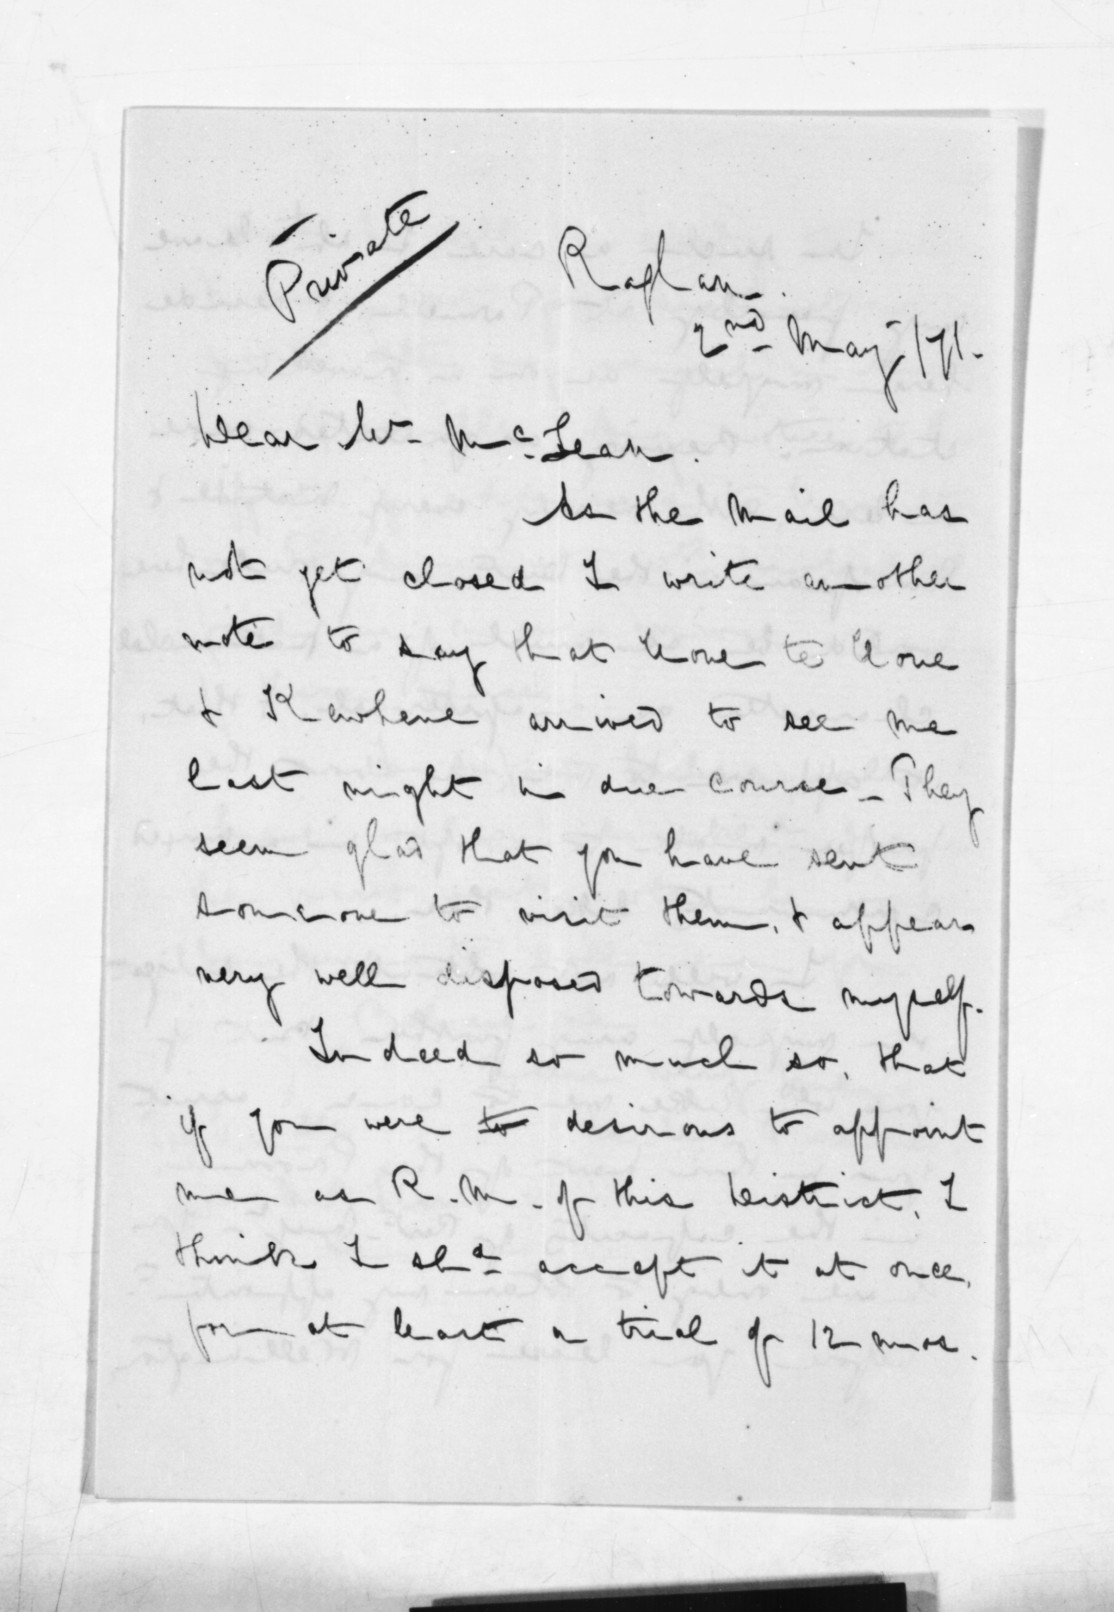 Private
Raglan.
2nd May /71.
Dear Mr McLean.
As the Mail has
not yet closed I write another
note to say that Hone te One
& Kewhene arrived to see me
last night in due course - They
seem glad that you have sent
someone to visit them, & appear
very well disposed towards myself.
Indeed so much so, that
if you were to desirous to appoint
me as R.M. of this District, I
think I shd accept it at once,
for at least a trial of 12 mos.